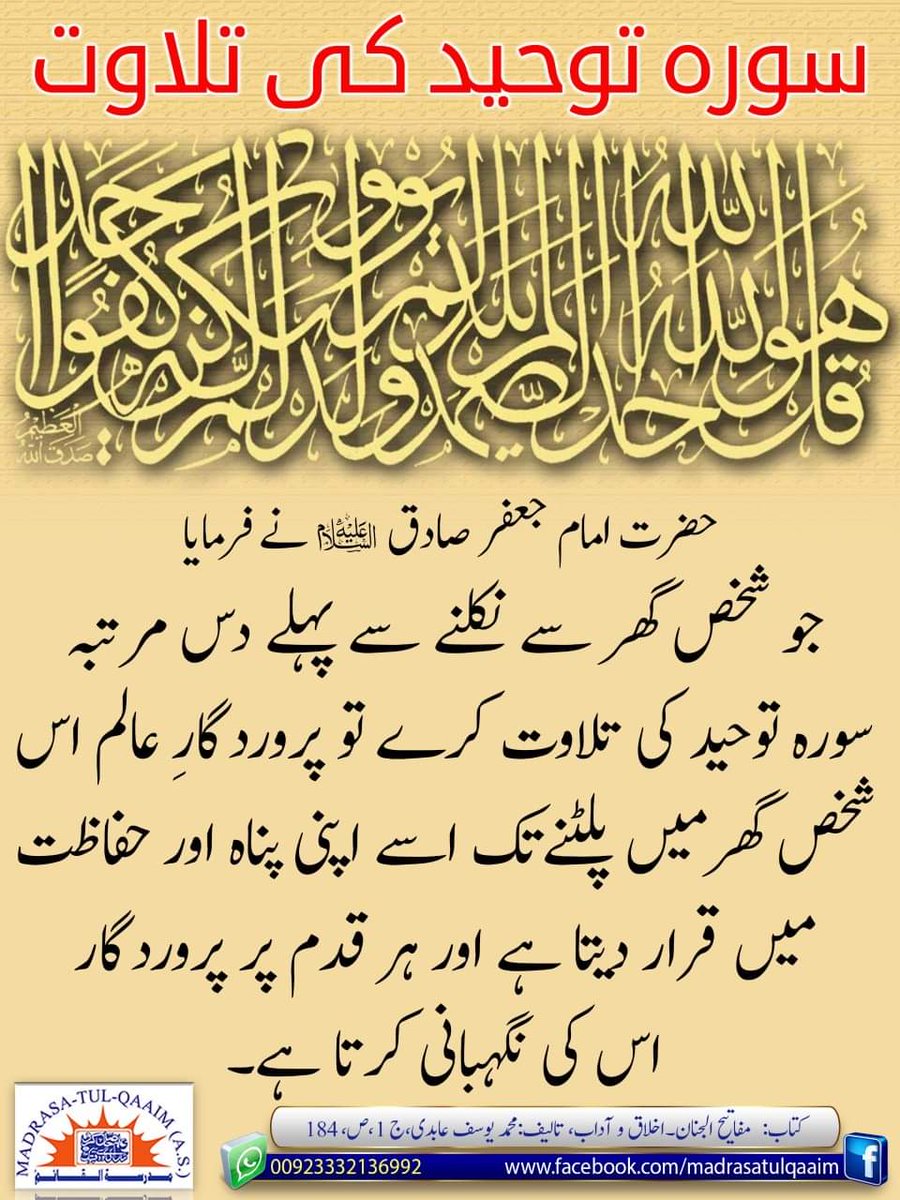 سورہ توحید کی تلاوت
قل هو الله احد الله الصمد لم يلد ولم يولد ولم يكن له كفوا احد
صدق الله العظيم
حضرت امام جعفر صادق علیہ السلام نے فرمایا
جو شخص گھر سے نکلنے سے پہلے دس مرتبہ
سورہ توحید کی تلاوت کرے تو پروردگارِ عالم اس
شخص گھر میں پلٹنے تک اسے اپنی پناہ اور حفاظت
میں قرار دیتا ہے اور ہر قدم پر پروردگار
اس کی نگہبانی کرتا ہے۔
کتاب: مفاتیح الجنان۔اخلاق و آداب، تالیف:محمد یوسف عابدی، ج 1،ص، 184
MADRASA-TUL-QAAIM (A.S)
مدرسة القائم
00923332136992
www.facebook.com/madrasatulqaaim